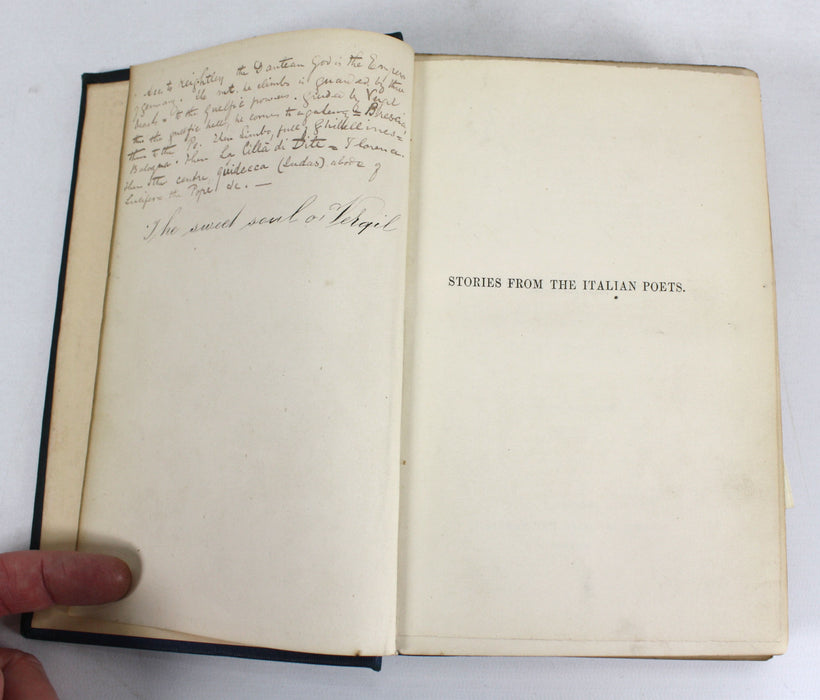 to Keightley the Dantean God is the Emperor
Germany. the mt. he climbs is guarded by three
beasts = to the Guelfic powers. guided by
thro the guelfic hells, he comes to = Brescia
then to the Po. Then Limbo, full Ghibellines =
Bologna. Then La Città di Dite = Florence.
then the centre, guidecca (Judas) abode of
Lucifero the Pope &c. —
The sweet soul of Vergil
STORIES FROM THE ITALIAN POETS.